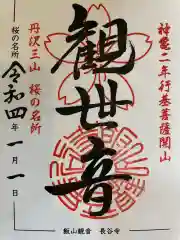 神亀二年行基菩薩開山
観世音
丹沢三山 桜の名所
桜の名所
令和四年一月一日
飯山観音 長谷寺